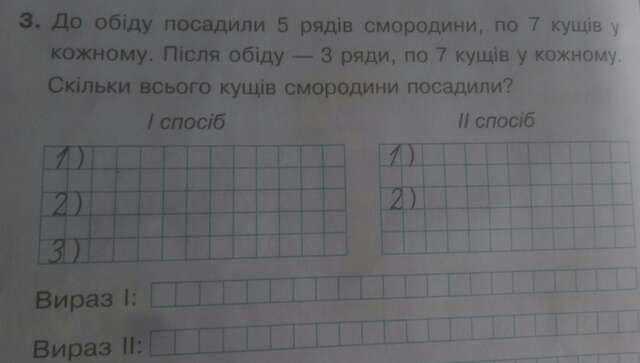 3. До обіду посадили 5 рядів смородини, по 7 кущів у
кожному. Після обіду — 3 ряди, по 7 кущів у кожному.
Скільки всього кущів смородини посадили?
I спосіб II спосіб
1) 1)
2) 2)
3)
Вираз I:
Вираз II: